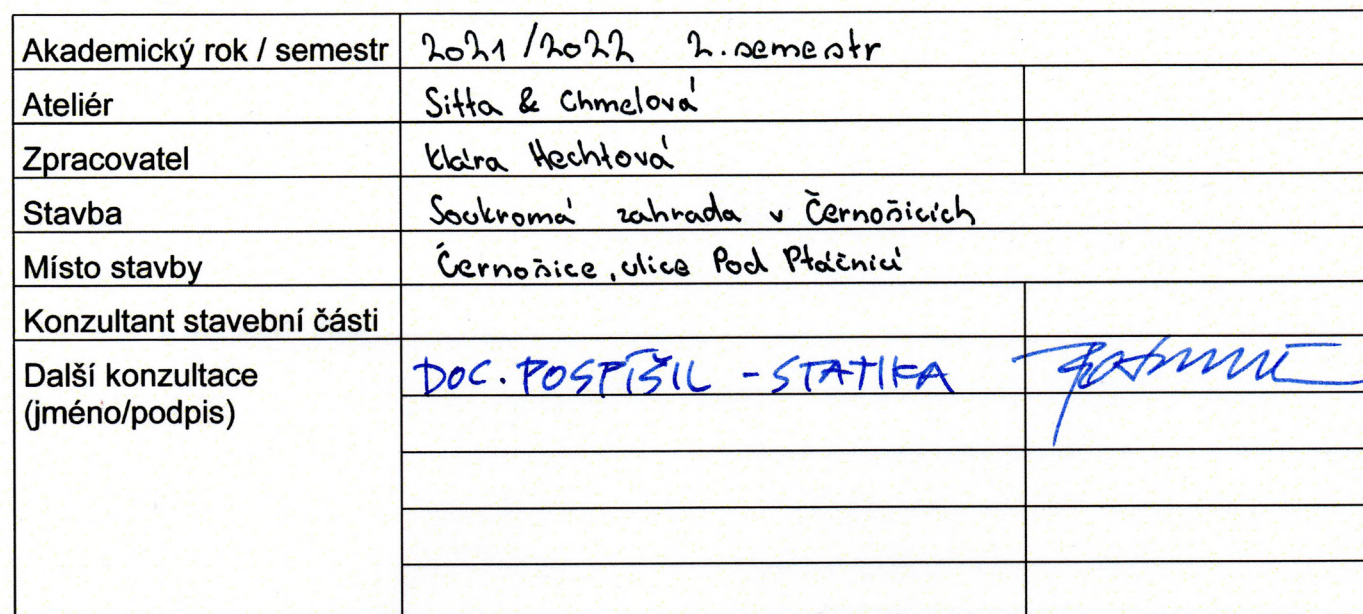 Akademický rok / semestr 2021/2022 2. semestr
Ateliér Sitta & Chmelová
Zpracovatel Klára Hechtová
Stavba Soukromá zahrada v Černošicích
Místo stavby Černošice, ulice Pod Ptáčnicí
Konzultant stavební části
Další konzultace DOC. POSPÍŠIL - STATIKA
(jméno/podpis)